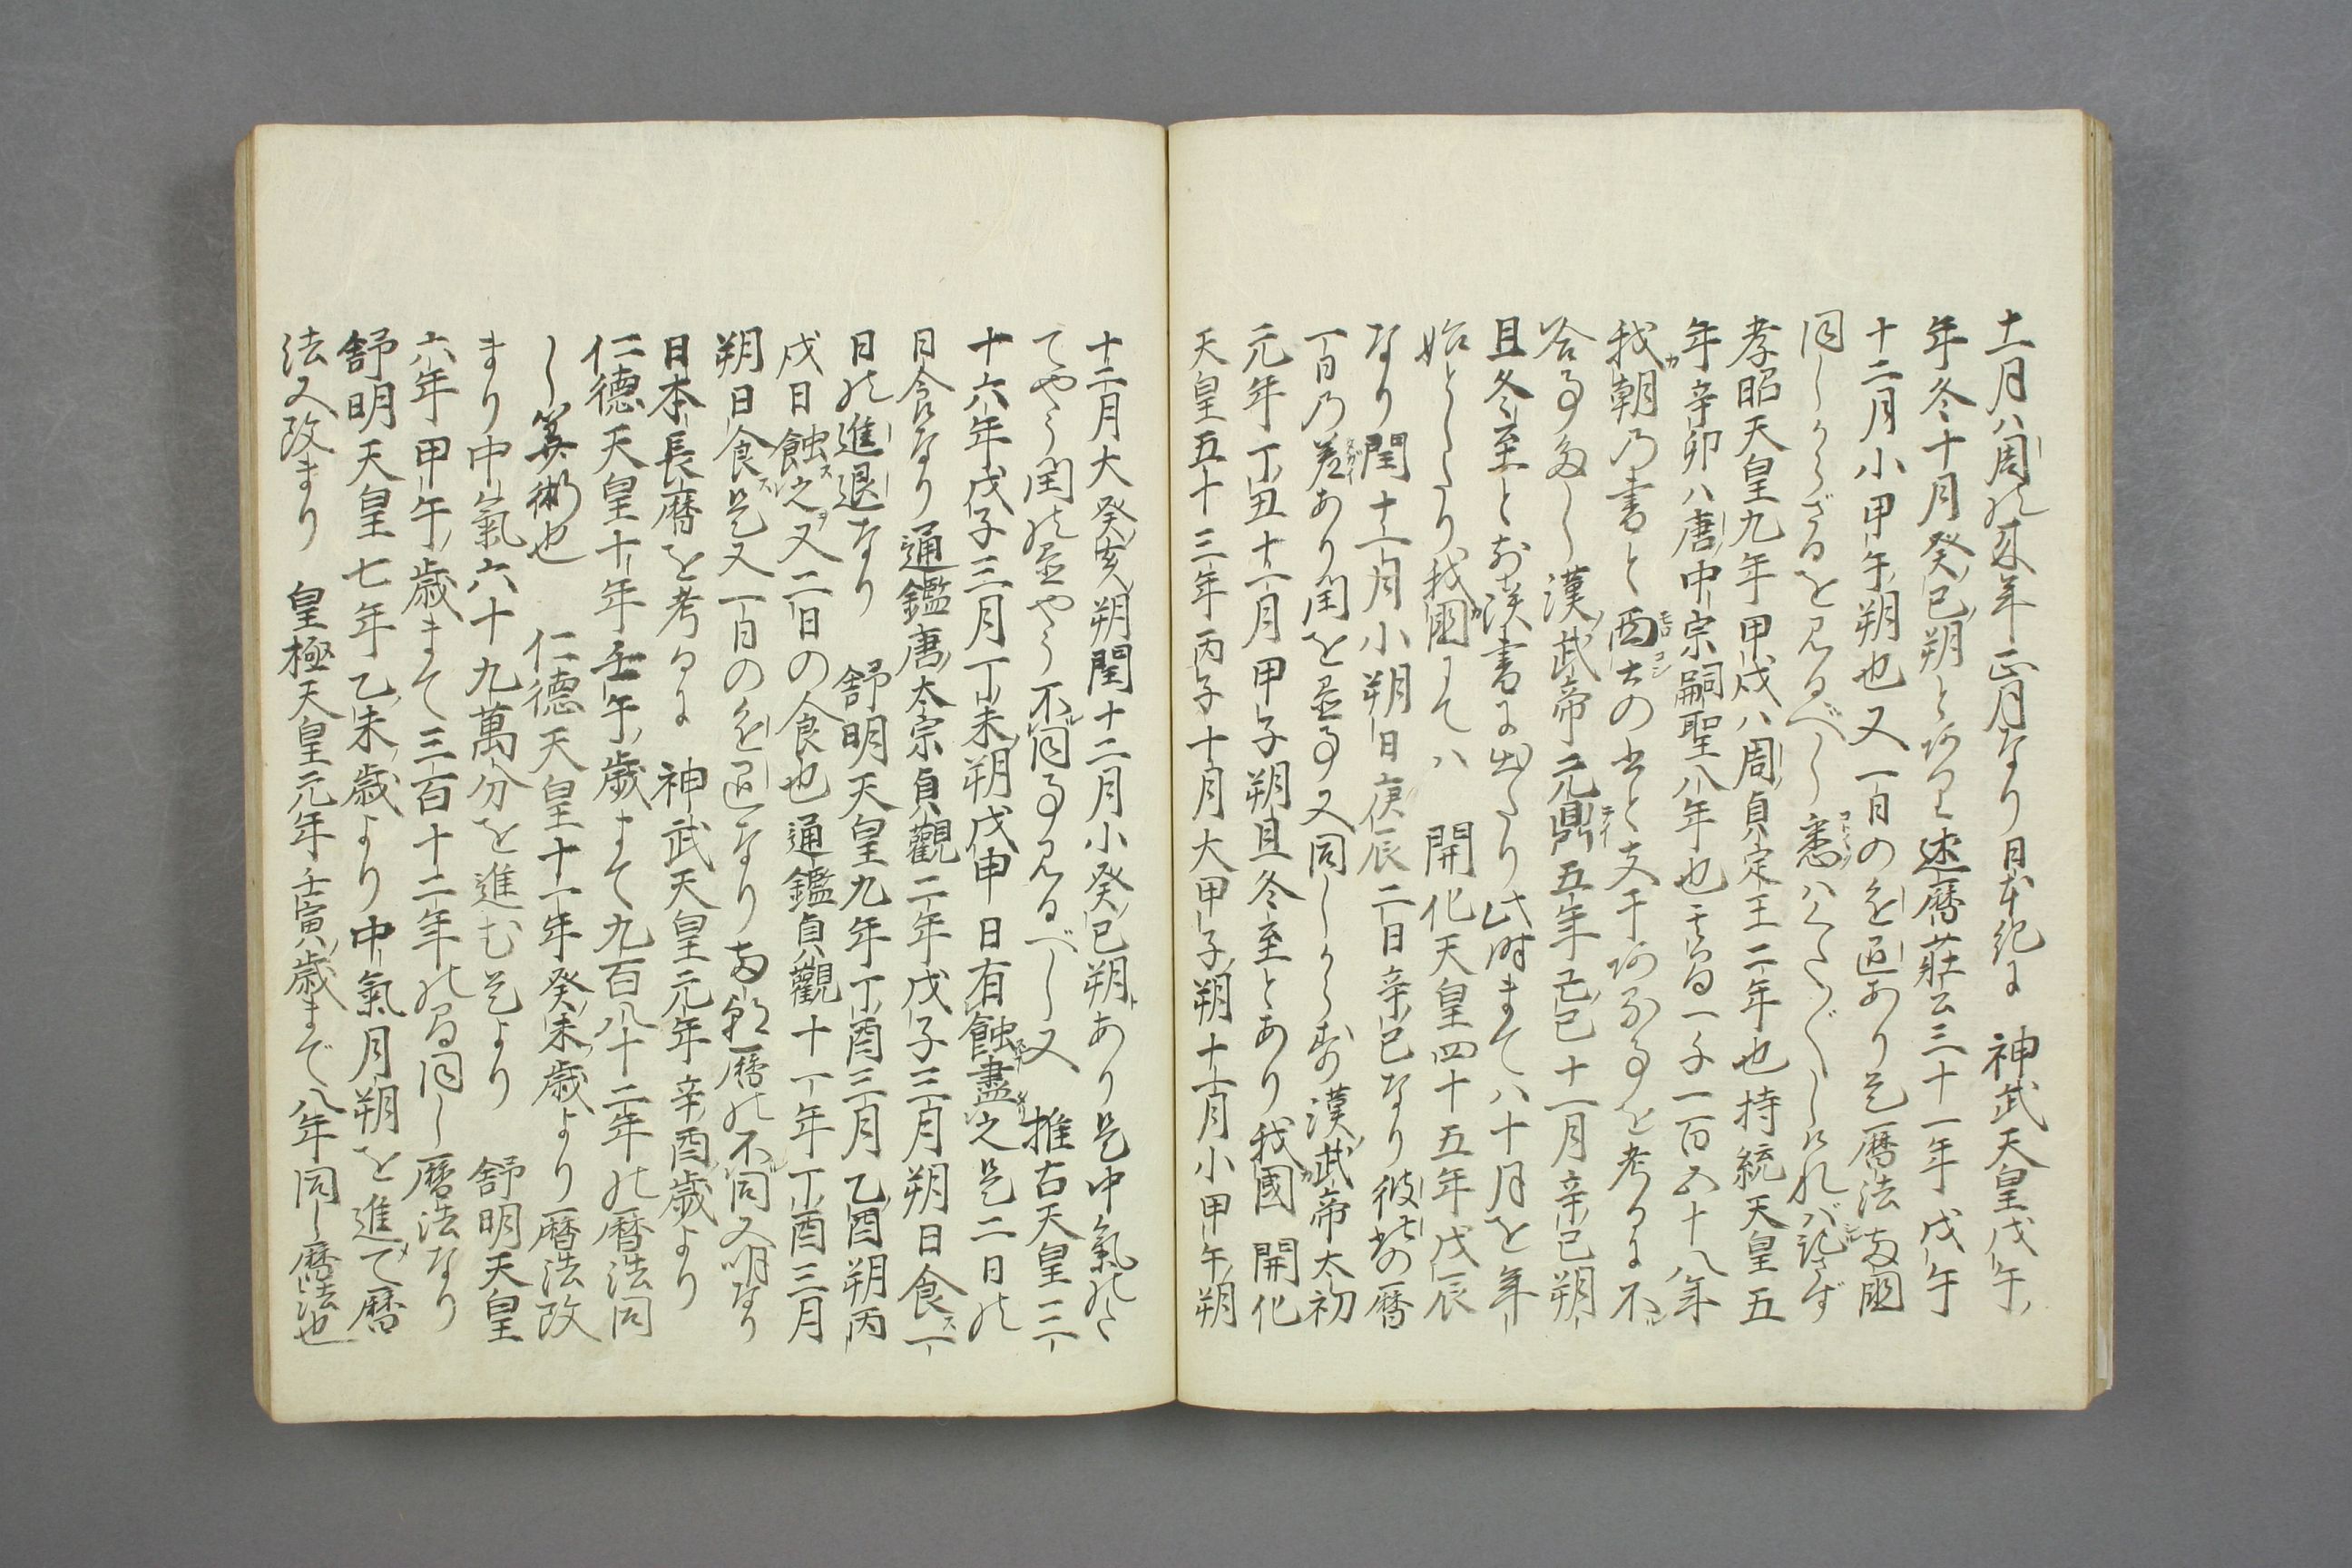 十一月ハ周の来年正月なり日本紀に　神武天皇戊午
年冬十月癸巳朔とあり三述暦莊云三十一年戊午
十二月小甲午朔也又一日のを迫あり是暦法両國
同しからざるを見るべし悉ハくだ〱しけれバ記さず
孝昭天皇九年甲戌ハ周貞定王二年也持統天皇五
年辛卯ハ唐中宗嗣聖八年也其間一千一百五十八年
我朝乃書と西土の書と支干あふ事を考るに不
合事多し漢武帝元鼎五年己巳十一月辛巳朔
旦冬至とお漢書に出たり此時まてハ十月を年
始としたり我國にてハ　開化天皇四十五年戊辰
なり閏十一月小朔日庚辰二日辛巳なり彼此の暦
一日乃差あり閏を置事又同しからず漢武帝太初
元年丁丑十一月甲子朔旦冬至とあり我國　開化
天皇五十三年丙子十月大甲子朔十一月小甲午朔
十二月大癸亥朔閏十二月小癸巳朔あり是中氣のた
てやう閏の置やう不同事見るべし又　推古天皇三
十六年戊子三月丁未朔戊申　日有蝕盡之是二日の
日食なり通鑑唐太宗貞觀二年戊子三月朔日食一
日の進退なり　舒明天皇九年丁酉三月乙酉朔丙
戌日蝕之又二日の食也通鑑貞觀十一年丁酉三月
朔日食是又一日のを迫なり両朝暦の不同又明なり
日本長暦を考るに　神武天皇元年辛酉歳より
仁德天皇十年壬午歳まて九百八十二年の暦法同
し筭術也　仁德天皇十一年癸未歳より暦法改
まり中氣六十九萬分を進む是より　舒明天皇
六年甲午歳まて三百十二年の間同し暦法なり
舒明天皇七年乙未歳より中氣月朔を進て暦
法又改まり　皇極天皇元年壬寅歳まで八年同し暦法也